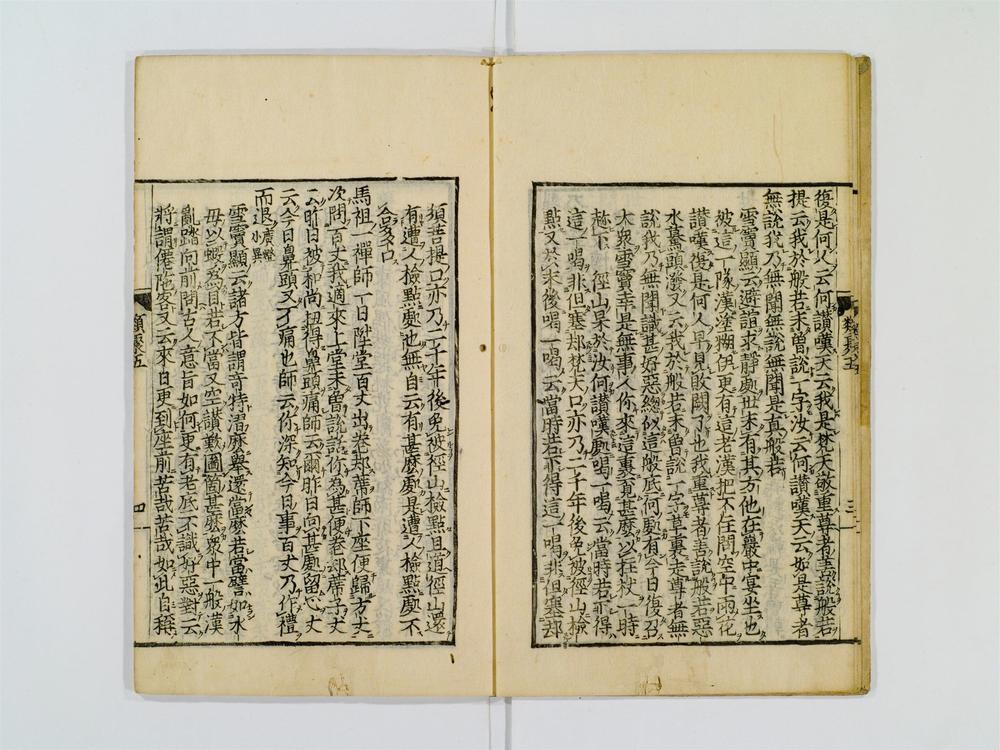 復是何人云何讃嘆天云我是梵天敬重尊者善説般若
提云我於般若未曽説一字汝云何讃嘆天云如是尊者
無説我乃無聞無説無聞是真般若
雪竇顯云避諠求静處世未有其方他在巖中宴坐也
被這一隊漢塗糊伊更有這老漢把不住問空中雨花
讃嘆復是何人早見敗闕了也我重尊者善説般若惡
水驀頭潑又云我於般若未曽説一字草裏走尊者無
説我乃無聞識甚好惡總似這般底何處有今日復召
大衆雪竇幸是無事人你來這裏覔甚麼以拄杖一時
趂下　徑山杲於汝何讃嘆處喝一喝云當時若下得
這一喝非但塞却梵天口亦乃二千年後免被徑山檢
點又於末後喝一喝云當時若下得這一喝非但塞却
類聚五
三
須菩提口亦乃二千年後免被徑山檢點且道徑山還
有遭人檢點處也無自云有甚麼處是遭人檢點處不
合多口
馬祖一禪師一日陞堂百丈出卷却蓆師下座便歸方丈
次問百丈我適來上堂未曽説話你為甚便卷却蓆子丈
云昨日被和尚扭得鼻頭痛師云爾昨日向甚處留心丈
云今日鼻頭又不痛也師云你深知今日事百丈乃作禮
而退廣燈小異
雪竇顯云諸方皆謂竒特漝麼舉還當麼若當譬如水
母以蝦為目若不當又空讃歎圖箇甚麼衆中一般漢
亂踏向前問古人意旨如何更有老底不識好惡對云
將謂僊陀客又云來日更到座前苦哉苦哉如此自稱
類聚五
四